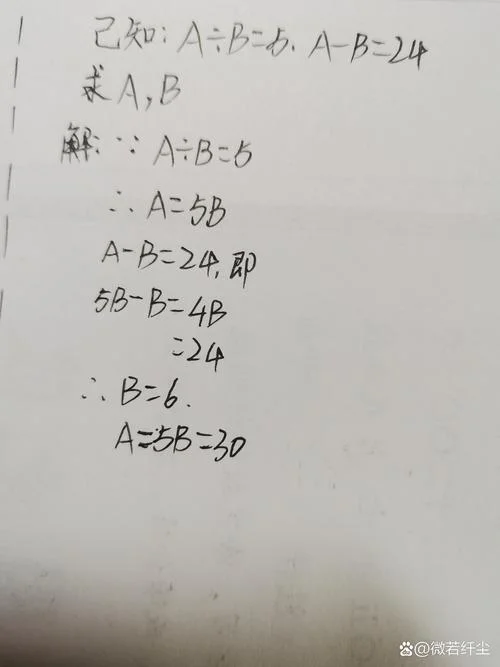 已知: A÷B=5. A-B=24
求A,B
解: ∵ A÷B=5
∴ A=5B
A-B=24,即
5B-B=4B
=24
∴ B=6.
A=5B=30
@微若纤尘